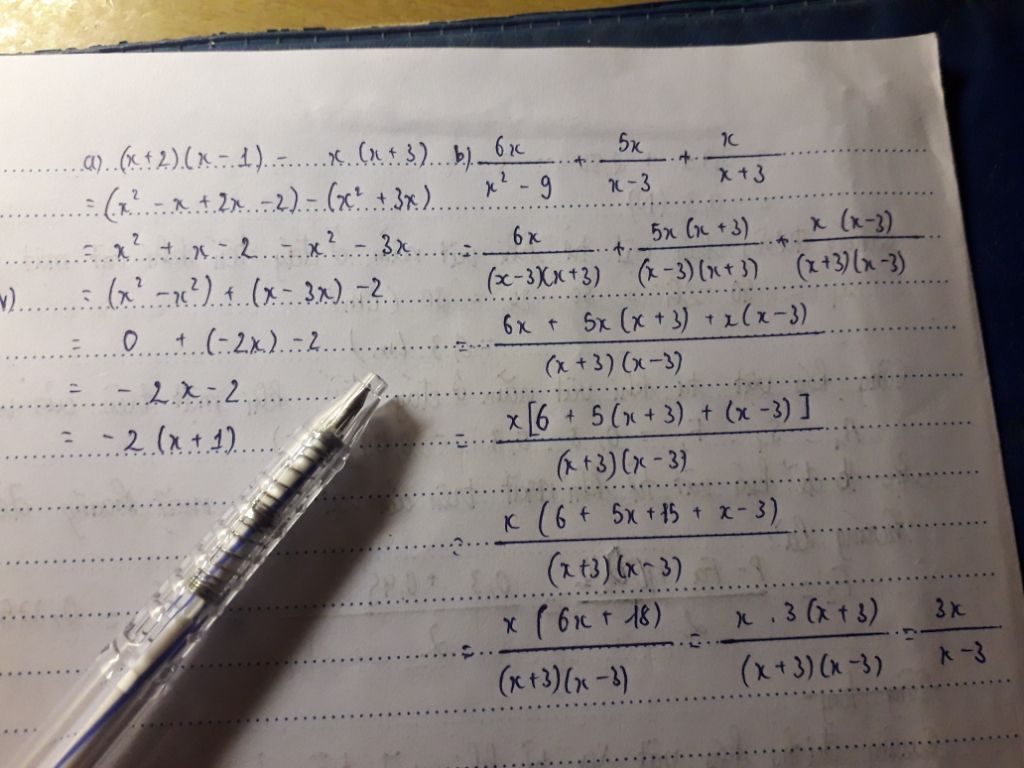 a) (x+2)(x-1) - x(x+3)
= (x² - x + 2x - 2) - (x² + 3x)
= x² + x - 2 - x² - 3x
= (x² - x²) + (x - 3x) - 2
= 0 + (-2x) - 2
= -2x - 2
= -2(x+1)
b) 6x/(x² - 9) + 5x/(x-3) + x/(x+3)
= 6x/((x-3)(x+3)) + 5x(x+3)/((x-3)(x+3)) + x(x-3)/((x+3)(x-3))
= (6x + 5x(x+3) + x(x-3))/((x+3)(x-3))
= x[6 + 5(x+3) + (x-3)]/((x+3)(x-3))
= x(6 + 5x + 15 + x - 3)/((x+3)(x-3))
= x(6x + 18)/((x+3)(x-3)) = x . 3(x+3)/((x+3)(x-3)) = 3x/(x-3)